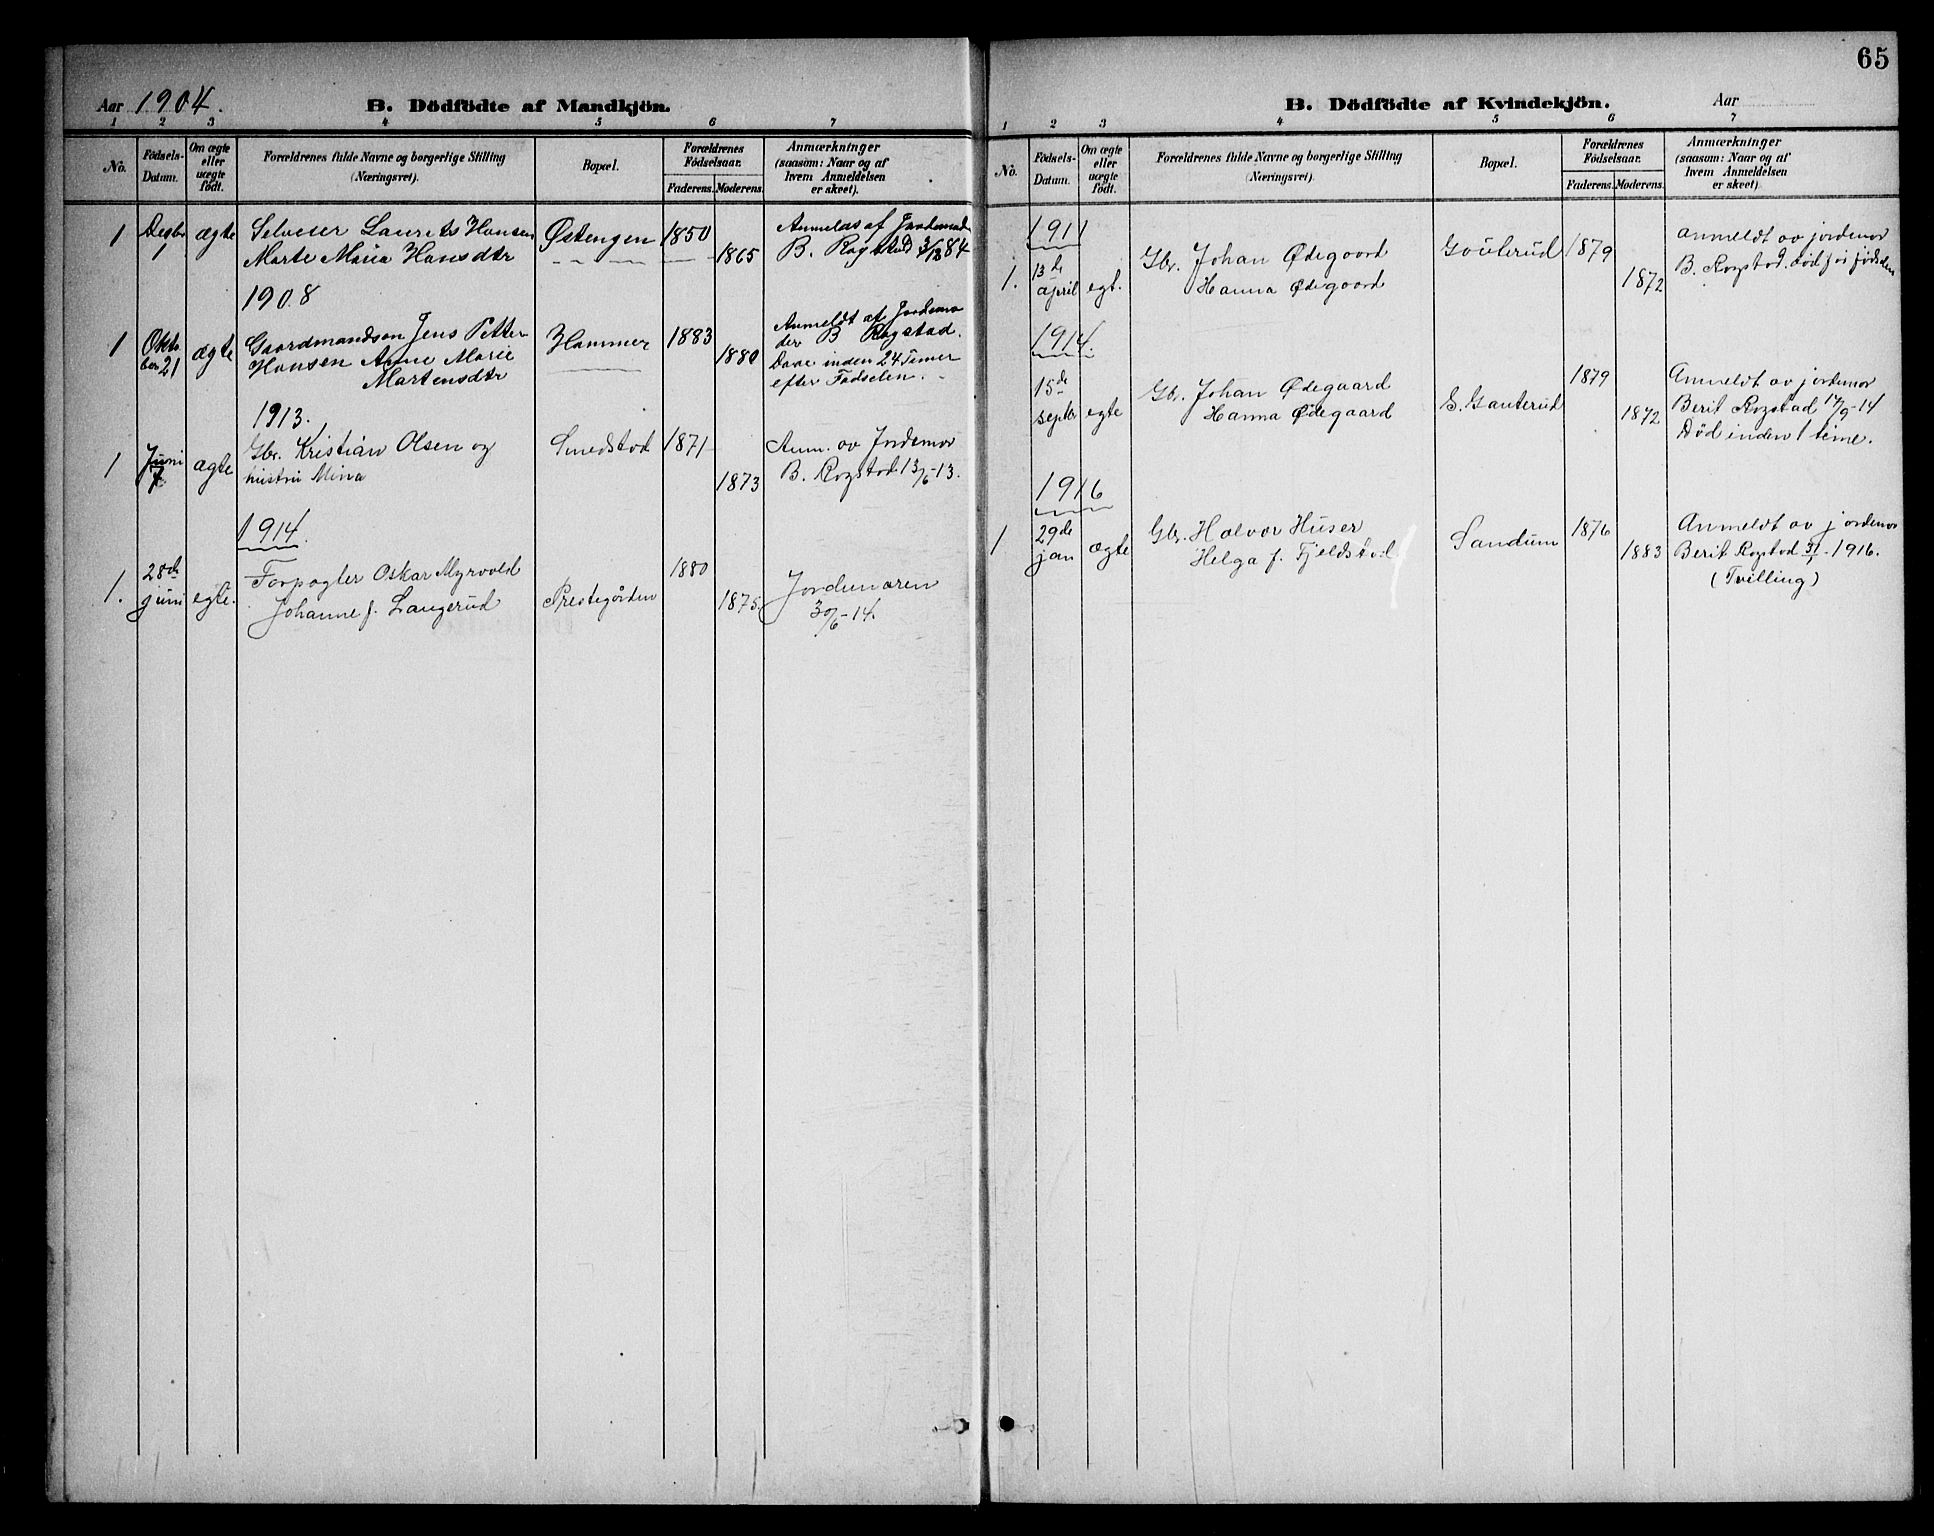 65
Aar 1904.
B. Dödfödte af Mandkjön.
1 2 3 4 5 6 7
No.
Födsels-Datum.
Om ægte eller uægte födt.
Forældrenes fulde Navne og borgerlige Stilling (Næringsvei).
Bopæl.
Forældrenes Födselsaar.
Faderens. Moderens.
Anmærkninger (saasom: Naar og af hvem Anmeldelsen er skeet).
1 Decbr 1 ægte
Laurits Hansen
Marte Maria Hansdtr
Østengen 1850 1865
af Jordemod
B. Rogstad
1908
1 Oktober 21 ægte
Gaardmandsøn Jens Petter
Hansen Anne Marie
Martensdtr
Hammer 1883 1880
Anmeldt af Jordemo
der B Rogstad.
Døde inden 24 Timer
efter Fødselen.
1913.
1 Juni 7 ægte
Gbr. Kristian Olsen og
hustru Mina
Smedstad 1871 1873
Anm. av Jordemor
B. Rogstad 13/6-13.
1914.
1. 28de juni egte.
Forpagter Oskar Myrvold
Johanne f. Langerud
Prestegården 1880 1875.
Jordemoren
30/6-14.
B. Dödfödte af Kvindekjön.
Aar
1 2 3 4 5 6 7
No.
Födsels-Datum.
Om ægte eller uægte födt.
Forældrenes fulde Navne og borgerlige Stilling (Næringsvei).
Bopæl.
Forældrenes Födselsaar.
Faderens. Moderens.
Anmærkninger (saasom: Naar og af hvem Anmeldelsen er skeet).
1911
1. 13de april egt.
Gbr. Johan Ødegaard
Hanna Ødegaard
1879 1872
anmeldt av jordemor
B. Rogstad. død før fødselen
1914.
15de septbr egte
Gbr. Johan Ødegaard
Hanna Ødegaard
S. Gauterud 1879 1872
Anmeldt av jordemor
Berit Rogstad 17/9-14
Død inden 1 time.
1916
1 29de jan ægte
Gbr. Halvor Huser
Helga f. Fjeldstad
Sandum 1876 1883
Anmeldt av jordemor
Berit Rogstad 31/1-1916.
(Tvilling)